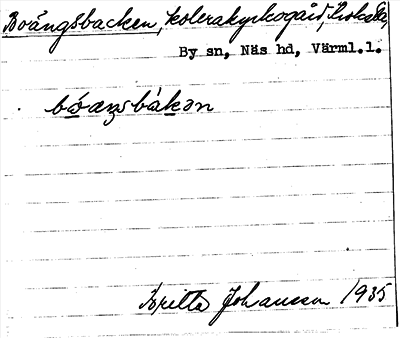 Boängsbacken, kolerakyrkogård,
By sn, Näs hd, Värml.l.
bóaŋsbàkən
Britta Johansson 1935